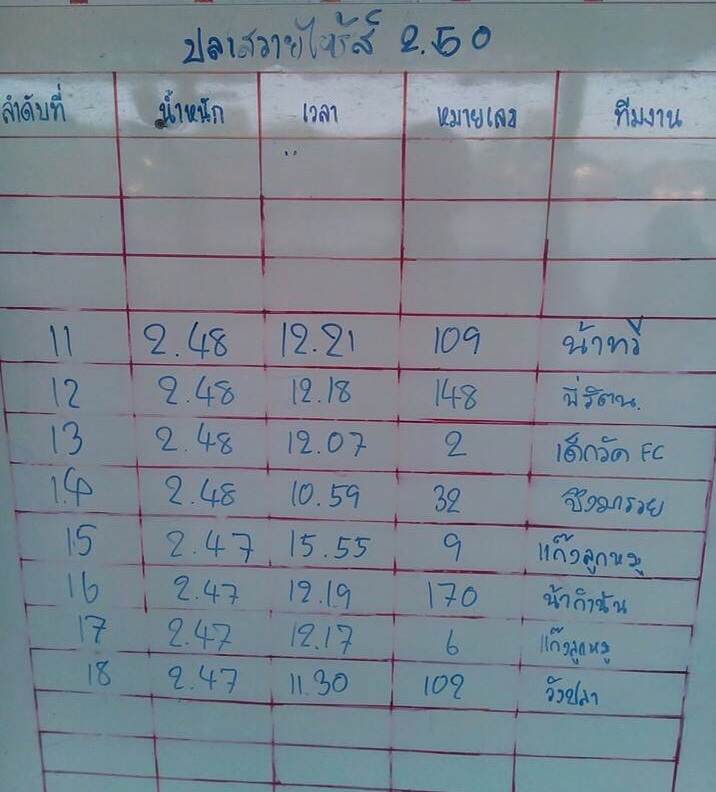 ปลาสวายไซร้ส์ 2.50
ลำดับที่ น้ำหนัก เวลา หมายเลข ทีมงาน
11 2.48 12.21 109 น้าทวี
12 2.48 12.18 148
13 2.48 12.07 2 เด็กวัด FC
14 2.48 10.59 32 จึงมารวย
15 2.47 15.55 9 แก๊งลูกหมู
16 2.47 12.19 170 น้ากำนัน
17 2.47 12.17 6 แก๊งลูกหมู
18 2.47 11.30 102 วังปลา